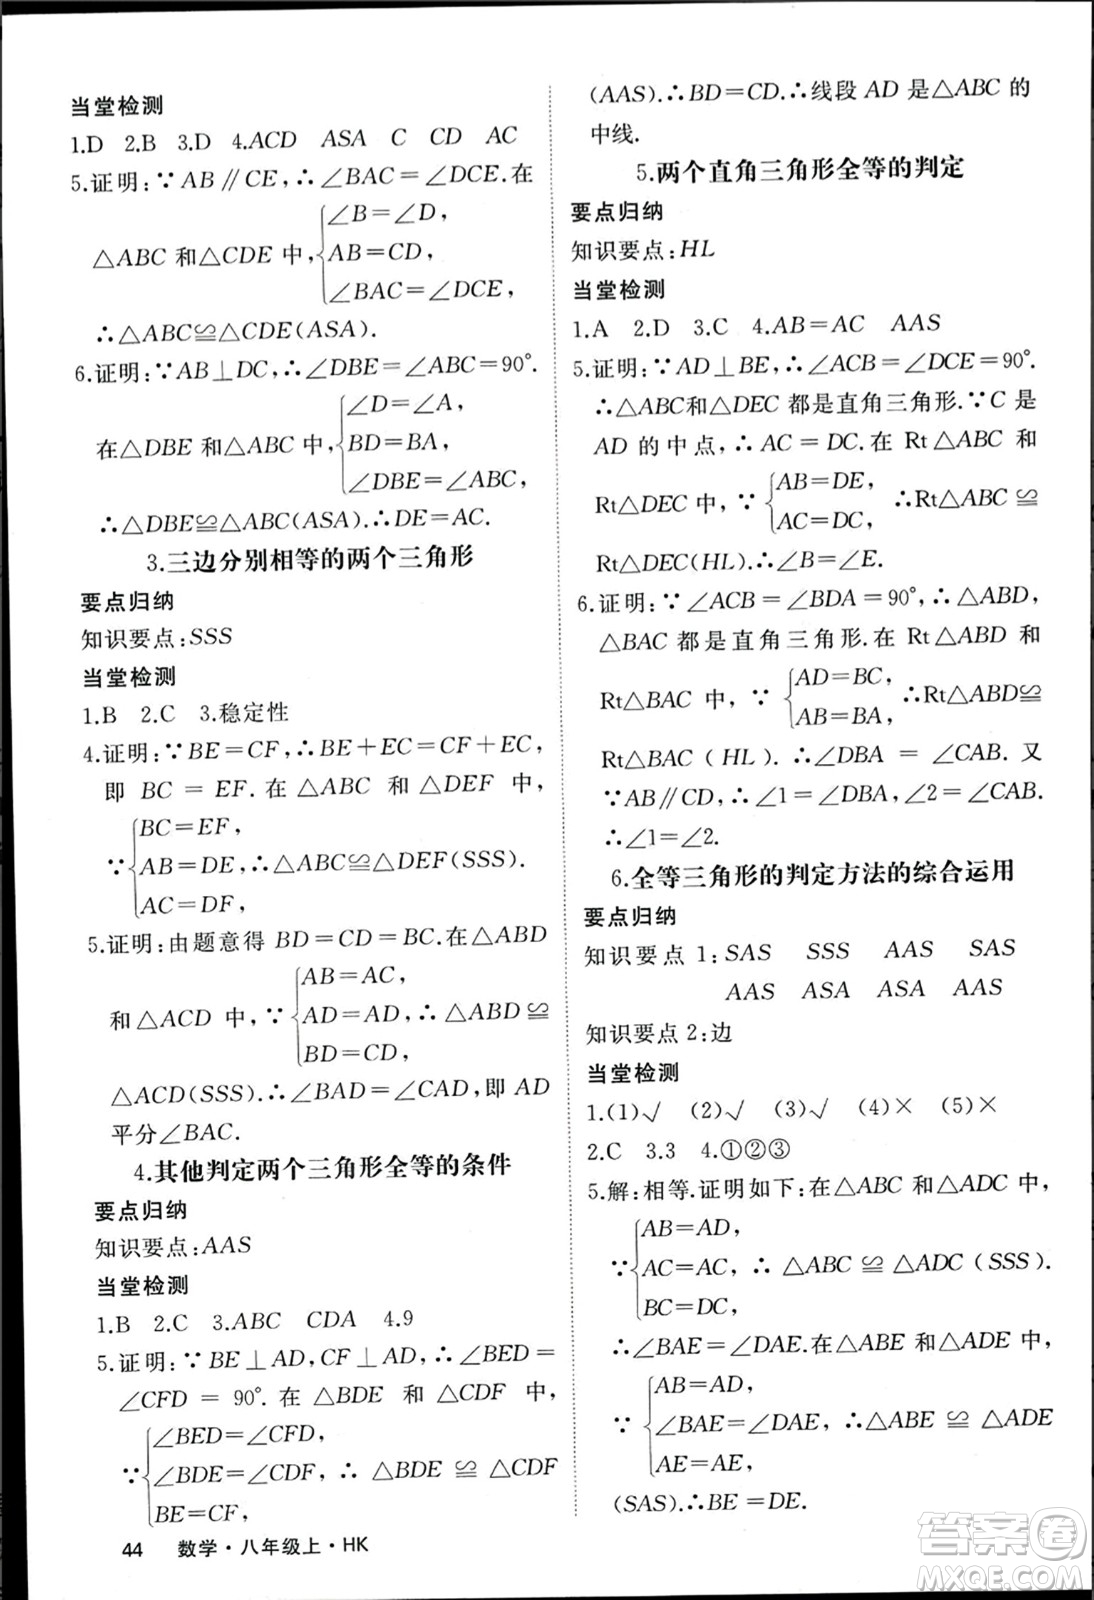 当堂检测
1.D 2.B 3.D 4.ACD ASA C CD AC
5.证明:∵AB∥CE,∴∠BAC=∠DCE.在
∠B=∠D,
△ABC 和△CDE 中,AB=CD,
∠BAC=∠DCE,
∴△ABC≌△CDE(ASA).
6.证明:∵AB⊥DC,∴∠DBE=∠ABC=90°.
∠D=∠A,
在△DBE 和△ABC 中,BD=BA,
∠DBE=∠ABC,
∴△DBE≌△ABC(ASA).∴DE=AC.
3.三边分别相等的两个三角形
要点归纳
知识要点:SSS
当堂检测
1.B 2.C 3.稳定性
4.证明:∵BE=CF,∴BE+EC=CF+EC,
即 BC = EF.在 △ABC 和 △DEF 中,
BC=EF,
∵AB=DE,∴△ABC≌△DEF(SSS).
AC=DF,
5.证明:由题意得 BD=CD=BC.在△ABD
AB=AC,
和△ACD 中,∵AD=AD,∴△ABD≌
BD=CD,
△ACD(SSS).∴∠BAD=∠CAD,即 AD
平分∠BAC.
4.其他判定两个三角形全等的条件
要点归纳
知识要点:AAS
当堂检测
1.B 2.C 3.ABC CDA 4.9
5.证明:∵BE⊥AD,CF⊥AD,∴∠BED=
∠CFD = 90°.在 △BDE 和 △CDF 中,
∠BED=∠CFD,
∵∠BDE=∠CDF,∴△BDE≌△CDF
BE=CF,
44 数学·八年级上·HK
(AAS).∴BD=CD.∴线段 AD 是△ABC 的
中线.
5.两个直角三角形全等的判定
要点归纳
知识要点:HL
当堂检测
1.A 2.D 3.C 4.AB=AC AAS
5.证明:∵AD⊥BE,∴∠ACB=∠DCE=90°.
∴△ABC和△DEC 都是直角三角形.∵C 是
AD 的中点,∴AC=DC.在 Rt△ABC 和
AB=DE,
Rt△DEC 中,∵ ∴Rt△ABC≌
AC=DC,
Rt△DEC(HL).∴∠B=∠E.
6.证明:∵∠ACB=∠BDA=90°,∴△ABD,
△BAC 都是直角三角形.在 Rt△ABD 和
AD=BC,
Rt△BAC 中,∵ ∴Rt△ABD≌
AB=BA,
Rt△BAC(HL).∴∠DBA = ∠CAB.又
∵AB∥CD,∴∠1=∠DBA,∠2=∠CAB.
∴∠1=∠2.
6.全等三角形的判定方法的综合运用
要点归纳
知识要点 1:SAS SSS AAS SAS
AAS ASA ASA AAS
知识要点 2:边
当堂检测
1.(1)√ (2)√ (3)√ (4)× (5)×
2.C 3.3 4.①②③
5.解:相等.证明如下:在△ABC 和△ADC 中,
AB=AD,
∵AC=AC,∴△ABC≌△ADC(SSS).
BC=DC,
∴∠BAE=∠DAE.在△ABE 和△ADE 中,
AB=AD,
∵∠BAE=∠DAE,∴△ABE≌△ADE
AE=AE,
(SAS).∴BE=DE.
答案圈
MXQE.COM